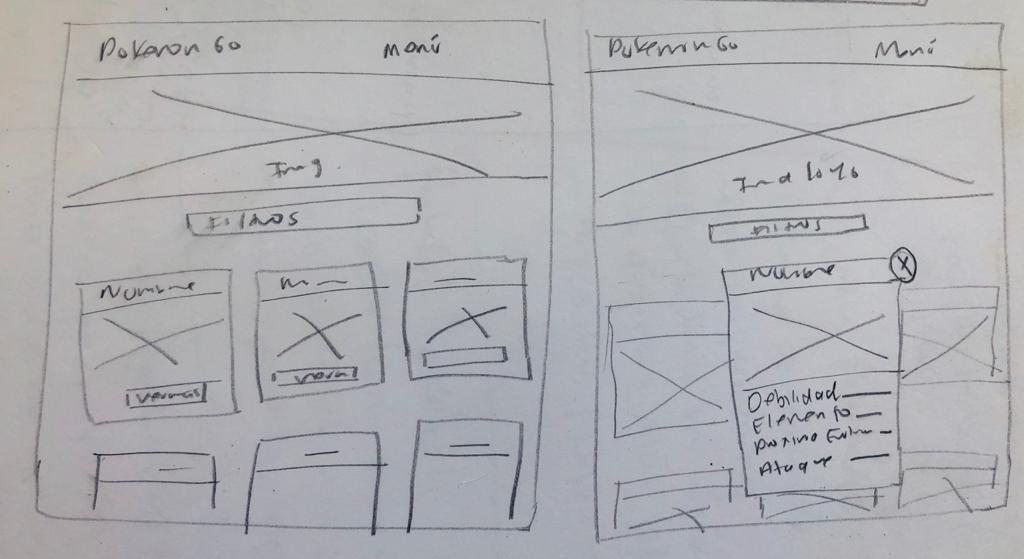 Pokemon Go Menú
Img
Filtros
Nombre
Ver mas
Pokemon Go Menú
Filtros
Nombre X
Debilidad
Elemento
Proximo
Ataque